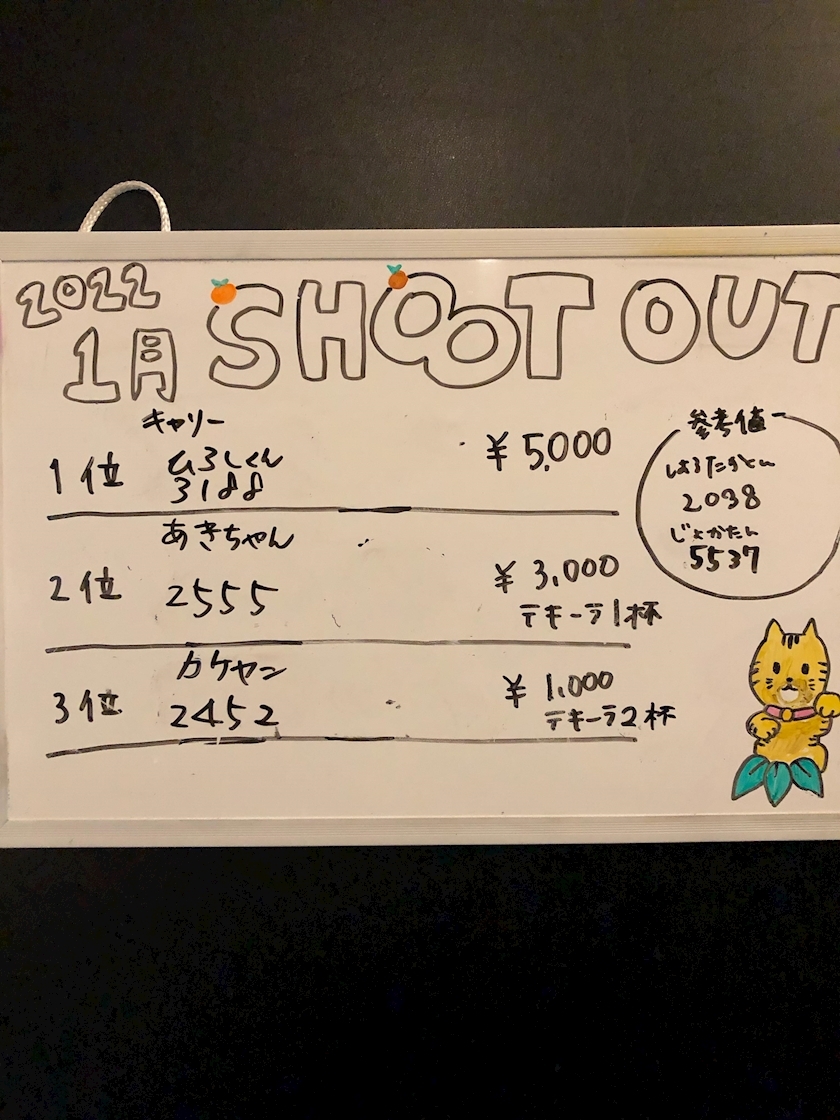 2022
1月 SHOOT OUT
キャリー
1位 ひろしくん ¥5,000
3188
あきちゃん
2位 2555 ¥3,000
テキーラ1杯
カケヤン
3位 2452 ¥1,000
テキーラ2杯
参考値
2038
じょかたん
5537